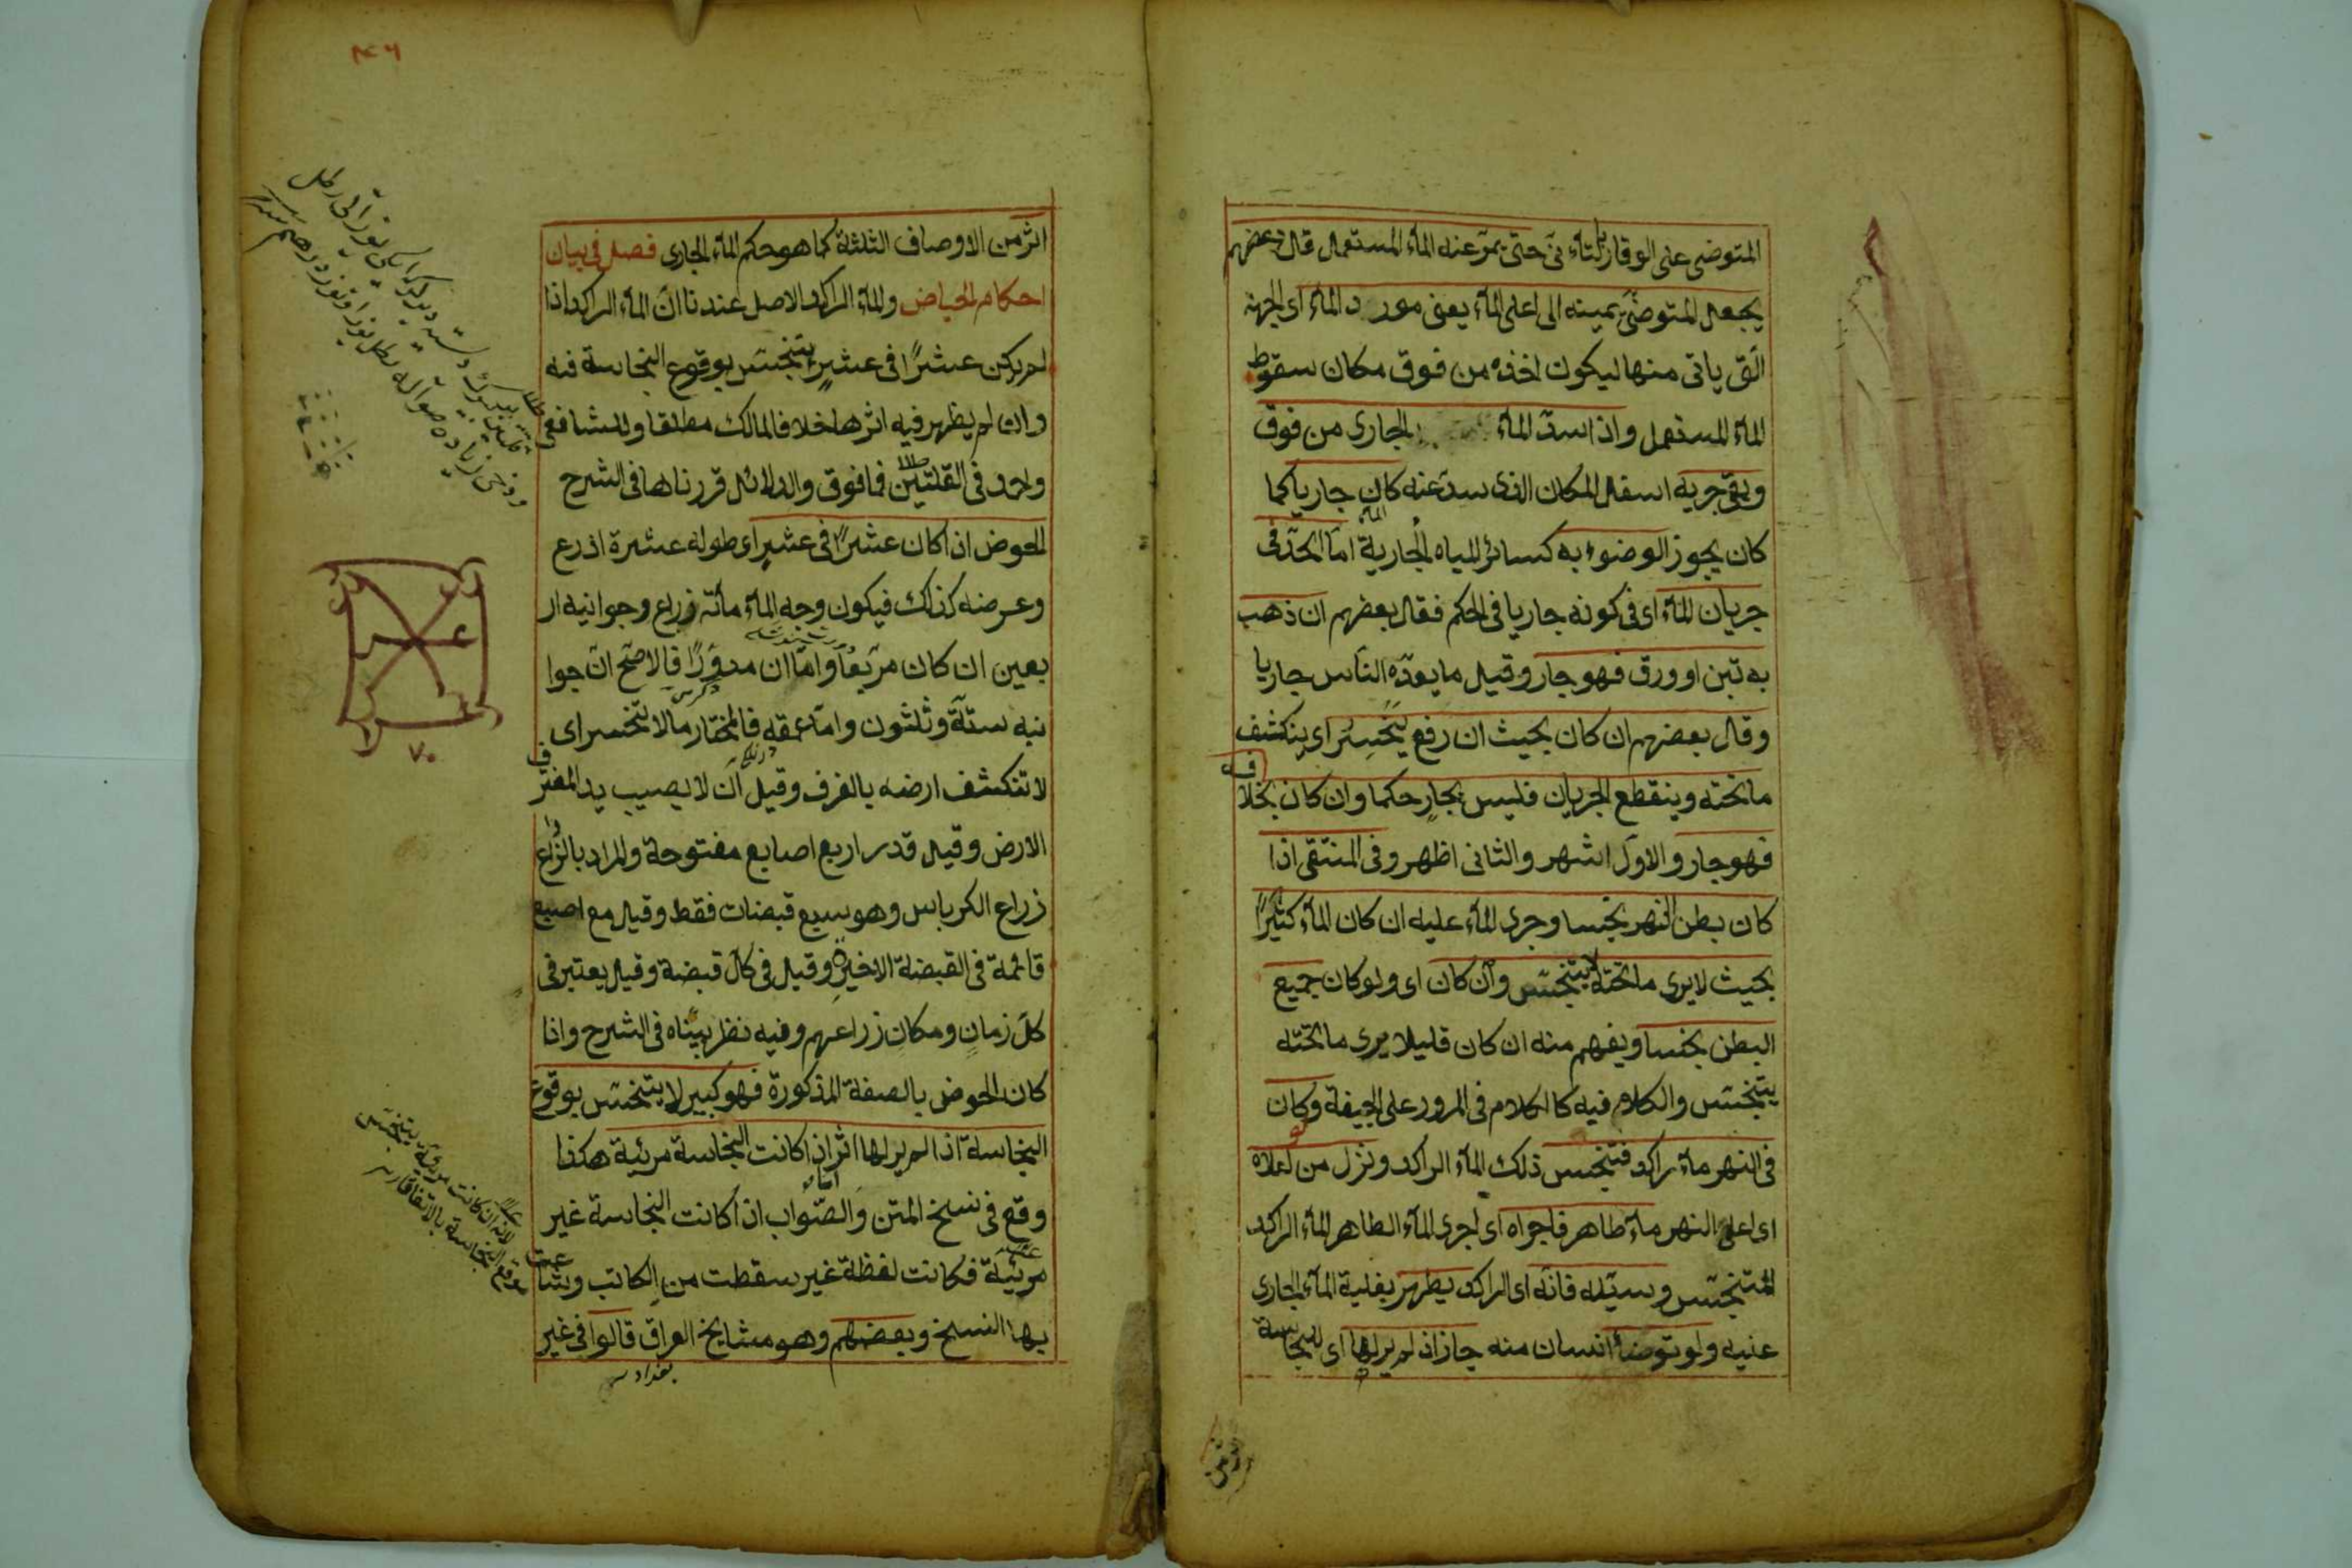 المتوضى على الوقار بالتأنى حتى يمر عنه الماء المستعمل قال بعضهم
يجعل المتوضى يمينه الى اعلى الماء يعنى مورد الماء اى الجهة
التى ياتى منها ليكون اخذه من فوق مكان سقوط
الماء المستعمل واذا سد الماء الجارى من فوق
وبقى جريه اسفل المكان الذى سد عنه كان جاريا كما
كان يجوز الوضوء به كسائر المياه الجارية اما الحد فى
جريان الماء اى فى كونه جاريا فى الحكم فقال بعضهم ان ذهب
به تبن او ورق فهو جار وقيل ما يعده الناس جاريا
وقال بعضهم ان كان بحيث ان رفع ينحسر اى ينكشف
ما تحته وينقطع الجريان فليس بجار حكما وان كان بخلافه
فهو جار والاول اشهر والثانى اظهر وفى المنتقى اذا
كان بطن النهر نجسا وجرى الماء عليه ان كان الماء كثيرًا
بحيث لا يرى ما تحته لا يتنجس وان كان اى ولو كان جميع
البطن نجسا ويفهم منه ان كان قليلا يرى ما تحته
يتنجس والكلام فيه كالكلام فى المرور على الجيفة ولو كان
فى النهر ماء راكد فتنجس ذلك الماء الراكد ونزل من اعلاه
اى اعلى النهر ماء طاهر فاجراه اى اجرى الماء الطاهر الماء الراكد
المتنجس وسيله فانه اى الراكد يطهر بغلبة الماء الجارى
عليه ولو توضأ انسان منه جاز اذ لم ير لها اى للنجاسة
اثر من الاوصاف الثلثة كما هو حكم الماء الجارى فصل فى بيان
احكام الحياض والماء الراكد الاصل عندنا ان الماء الراكد اذا
لم يكن عشرًا فى عشرٍ يتنجس بوقوع النجاسة فيه
وان لم يظهر فيه اثرها خلافا لمالك مطلقا وللشافعى
واحمد فى القلتين فما فوق والدلائل قررناها فى الشرح
الحوض اذا كان عشرًا فى عشرٍ اى طوله عشرة اذرع
وعرضه كذلك فيكون وجه الماء مائة زراع وجوانبه ار
بعين ان كان مربعًا واما ان مدورًا فالاصح ان جوا
نبه ستة وثلثون واما عمقه فالمختار ما لا ينحسر اى
لا تنكشف ارضه بالغرف وقيل ان لا يصيب يد المغترف
الارض وقيل قدر اربع اصابع مفتوحة والمراد بالزراع
زراع الكرباس وهو سبع قبضات فقط وقيل مع اصبع
قائمة فى القبضة الاخيرة وقيل فى كل قبضة وقيل يعتبر فى
كل زمانٍ ومكانٍ زراعهم وفيه نظر بيناه فى الشرح واذا
كان الحوض بالصفة المذكورة فهو كبير لا يتنجس بوقوع
النجاسة اذا لم ير لها اثر اذا كانت النجاسة مرئية هكذا
وقع فى نسخ المتن والصواب اذا كانت النجاسة غير
مرئية فكانت لفظة غير سقطت من الكاتب وشاعت
بها النسخ وبعضهم وهو مشايخ العراق قالوا فى غير
بغداد
٧٠